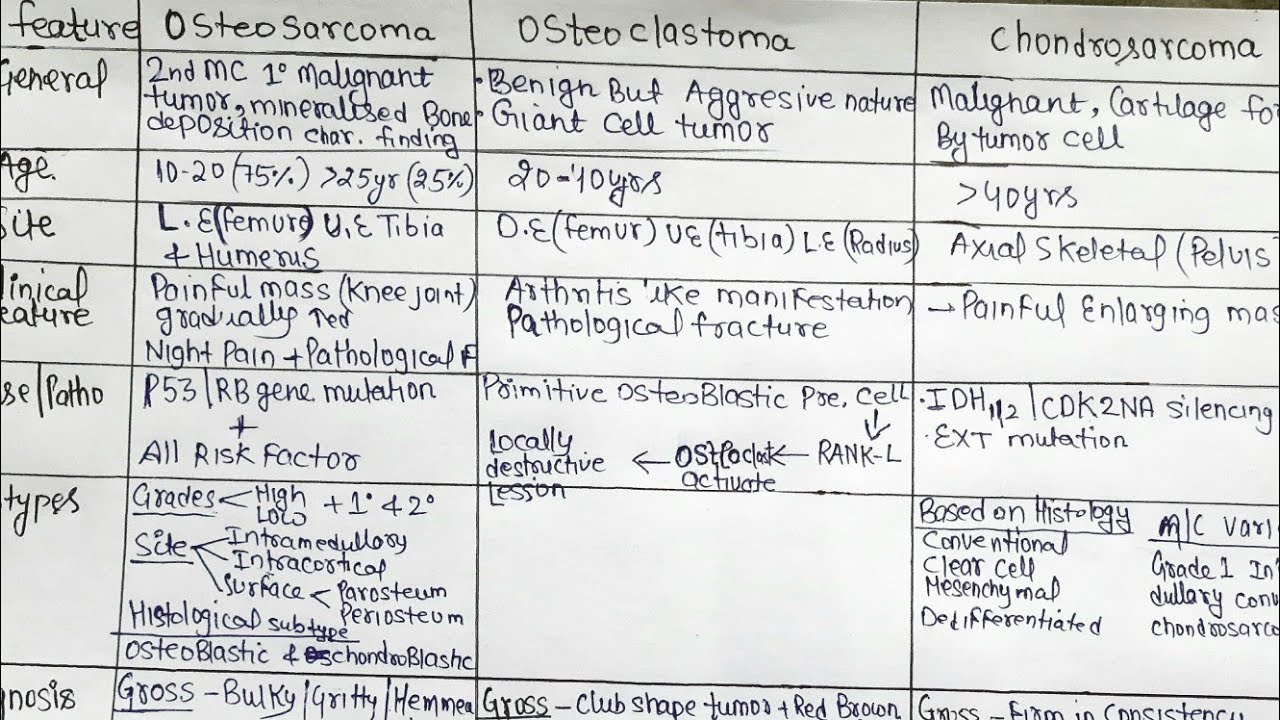 feature
Osteosarcoma
Osteoclastoma
Chondrosarcoma
General
2nd MC 1° Malignant
tumor, mineralised Bone
deposition char. finding
• Benign But Aggresive nature
• Giant cell tumor
Malignant, Cartilage fo
By tumor cell
Age.
10-20 (75%) >25yr (25%)
20-40yrs
>40yrs
Site
L.E (femure) U.E Tibia
& Humerus
D.E (femur) UE (tibia) L.E (Radius)
Axial Skeletal (Pelvis
linical
eature
Painful mass (Knee joint)
gradually ↑ed
Night Pain + Pathological F
Arthritis like manifestation
Pathological fracture
→ Painful Enlarging mas
se/Patho
P53 / RB gene mutation
+
All Risk Factor
Primitive OsteoBlastic Pre. Cell
↓
Locally
destructive
Lesson
← Osteoclast
activate
← RANK-L
• IDH 1/2 / CDK2NA silencing
• EXT mutation
types
Grades < High
Low
+ 1° & 2°
Site
Intramedullory
Intracortical
Surface < Parosteum
Periosteum
Histological subtype
OsteoBlastic & chondroBlastic
Based on Histology
Conventional
Clear cell
Mesenchymal
Dedifferentiated
M/C Vari
Grade 1 In
dullary conv
chondrosarco
gnosis
Gross - Bulky / Gritty / Hemmea
Gross - Club shape tumor + Red Brown
Gross - Firm in Consistency